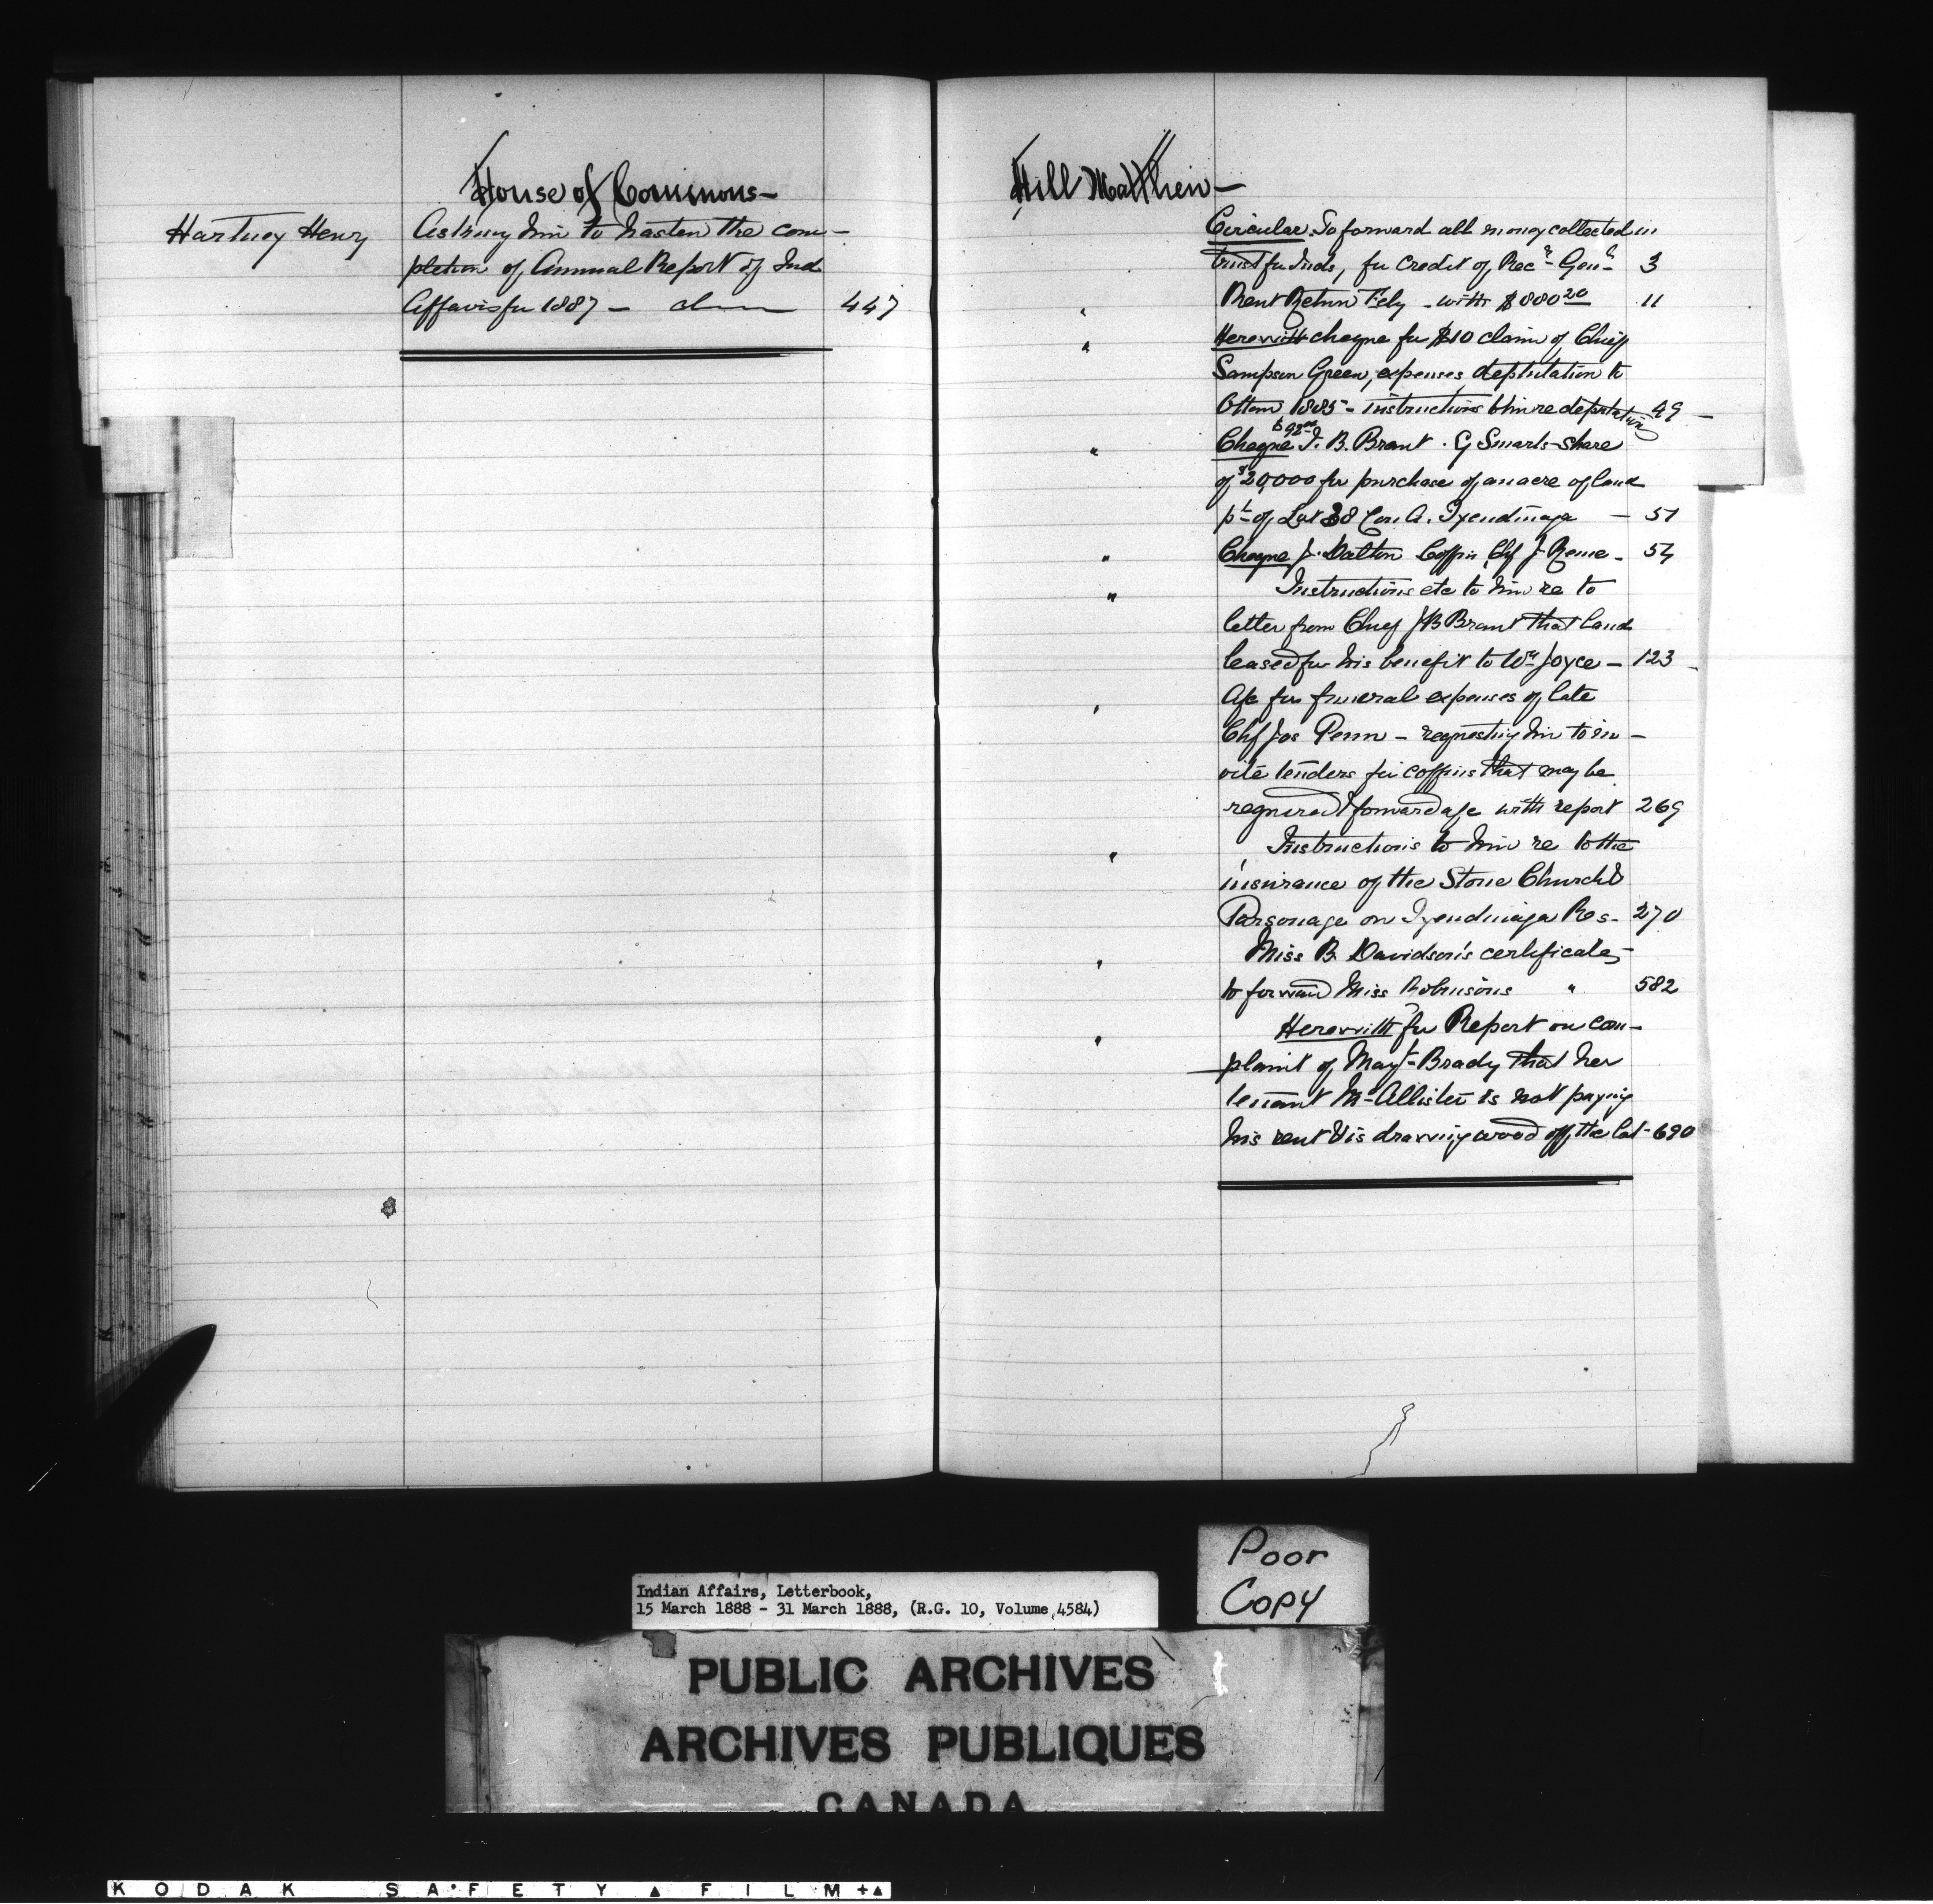 House of Commons—
Hartney Henry Asking him to hasten the com-
pletion of Annual Report of Ind
Affairs for 1887 — 447
Hill Matthew—
Circular. To forward all money collected in
trust fr Inds, for Credit of Recr Genl 3
" Rent Return Feby - with $880 20 11
" Herewith cheque for $10 claim of Chief
Sampson Green, expenses deputation to
Ottawa 1885 - instructions to him re deputation 49 —
" Cheque J. B. Brant . G Smarts share
of $20,000 for purchase of an acre of land
pt of Lot 38 Con A. Tyendinaga — 51
" Cheque J. Dalton Coffin Chf J 54
" Instructions etc to him re to
letter from Chief J B Brant that land
leased for his benefit to Wm Joyce — 123
" A/c for funeral expenses of late
Chf Jos Penn — requesting him to in-
vite tenders for coffins that may be
required & forward a/c with report 269
" Instructions to him re to the
insurance of the Stone Church &
Parsonage on Tyendinaga Res- 270
" Miss B. Davidson's certificate,
to forward Miss Robinsons " 582
" Herewith for Report on com-
plaint of Mart Brady that her
tenant McAllister is not paying
his rent & is drawing wood off the lot - 690
Poor
Copy
Indian Affairs, Letterbook,
15 March 1888 - 31 March 1888, (R.G. 10, Volume 4584)
PUBLIC ARCHIVES
ARCHIVES PUBLIQUES
CANADA
KODAK SAFETY FILM